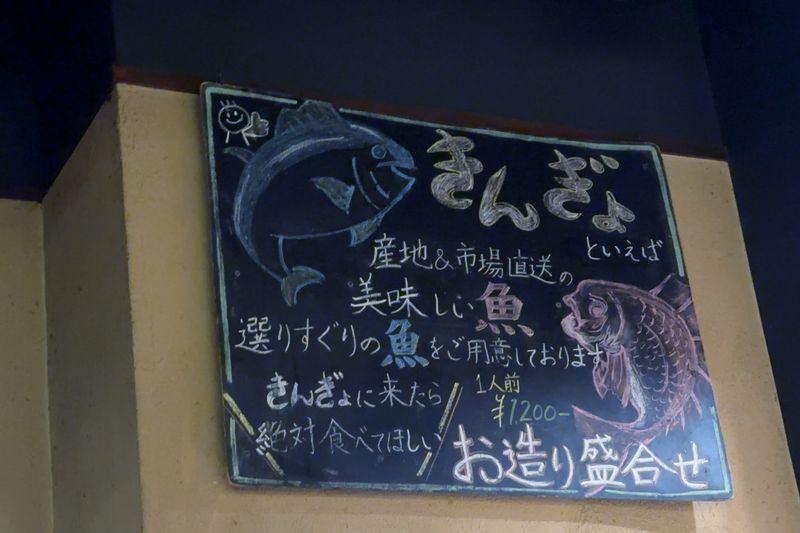 きんぎょ
といえば
産地&市場直送の
美味しい魚
選りすぐりの魚をご用意しております
きんぎょに来たら
絶対食べてほしい
1人前
¥1,200-
お造り盛合せ